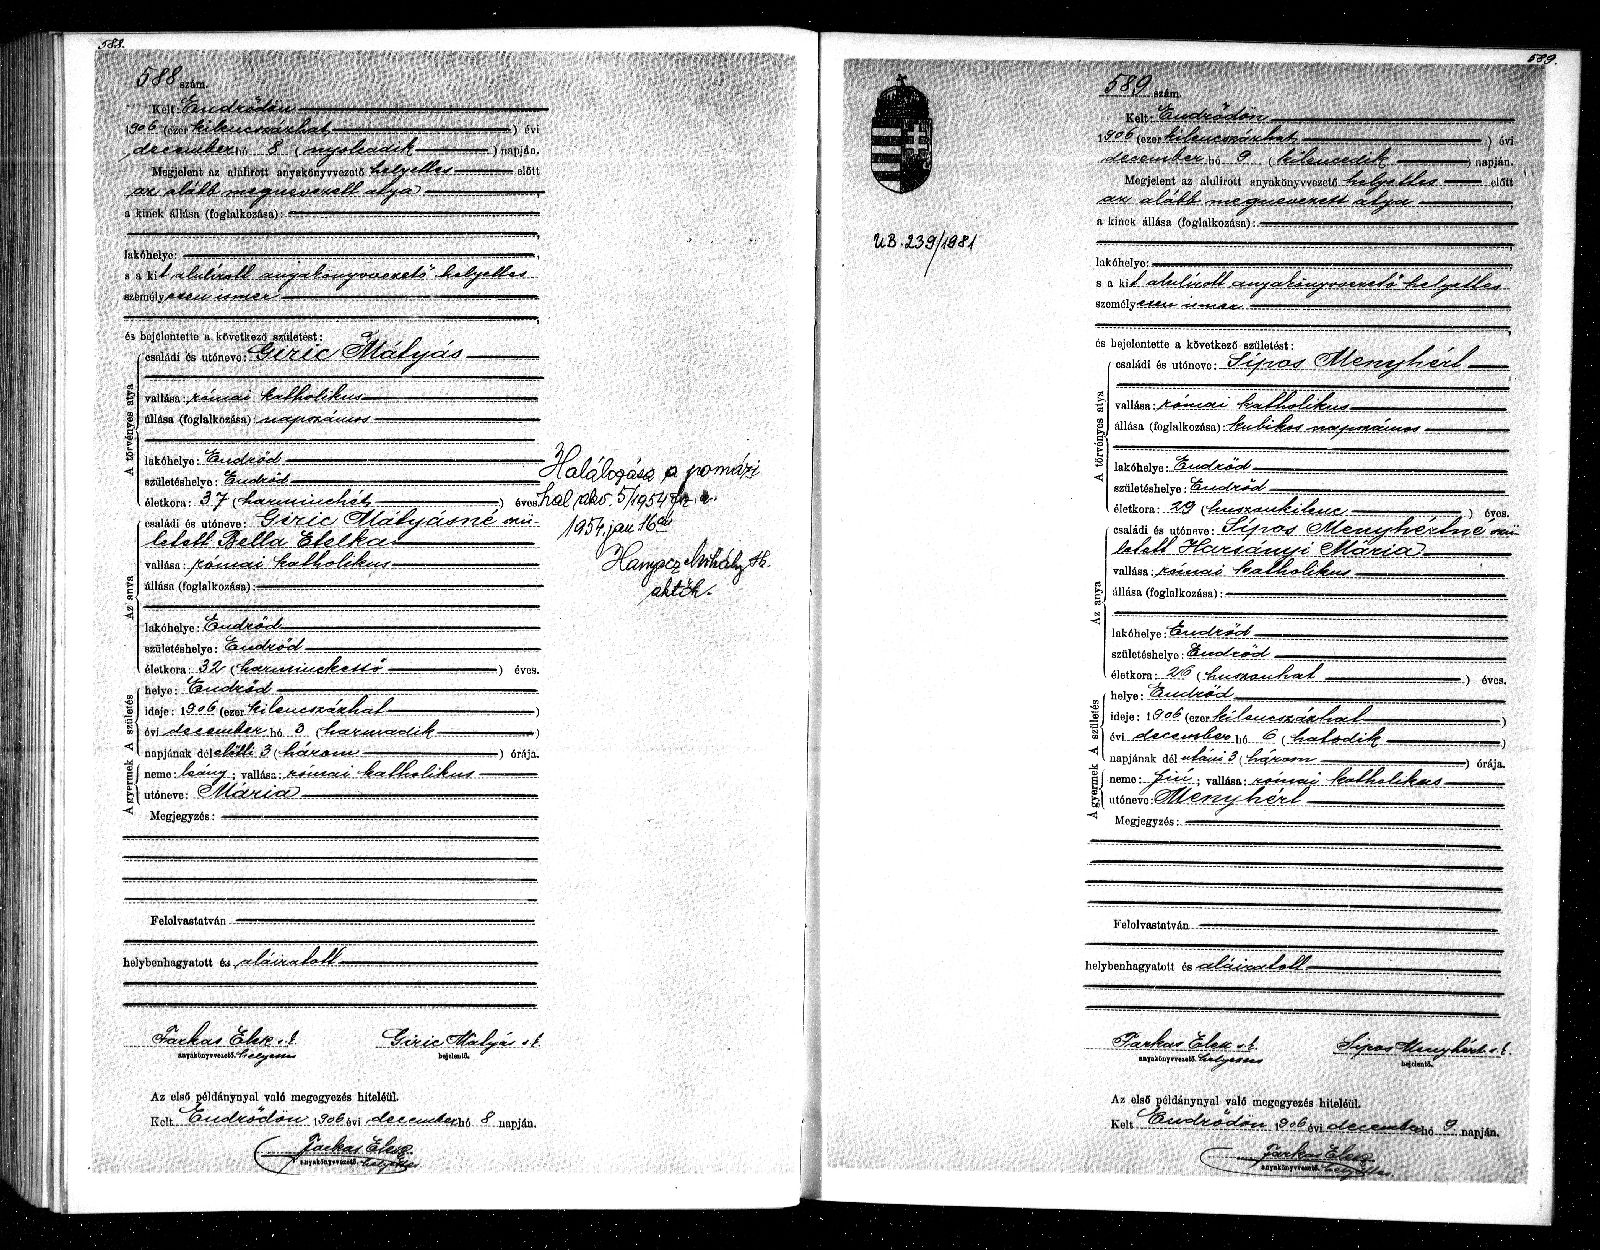 588.
588 szám.
Kelt: Endrődön
1906 (ezer kilenczszázhat) évi
december hó 8 (nyolcadik) napján.
Megjelent az alulirott anyakönyvvezető helyettes előtt
az alább megnevezett atya
a kinek állása (foglalkozása):
lakóhelye:
s a kit alulirott anyakönyvvezető helyettes
személyesen ismer
és bejelentette a következő születést:
A törvényes atya
családi és utóneve: Giric Mátyás
vallása: római katholikus
állása (foglalkozása): napszámos
lakóhelye: Endrőd
születéshelye: Endrőd
életkora: 37 (harminchét) éves.
Az anya
családi és utóneve: Giric Mátyásné szü-
letett Bella Etelka
vallása: római katholikus
állása (foglalkozása):
lakóhelye: Endrőd
születéshelye: Endrőd
életkora: 32 (harminckettő) éves.
A születés
helye: Endrőd
ideje: 1906 (ezer kilenczszázhat)
évi december hó 3 (harmadik)
napjának dél előtti 3 (három) órája.
A gyermek
neme: leány; vallása: római katholikus
utóneve: Mária
Megjegyzés:
Felolvastatván
helybenhagyatott és aláiratott
Farkas Elek s.k. Giric Mátyás s.k.
anyakönyvvezető. helyettes bejelentő.
Az első példánynyal való megegyezés hiteléül.
Kelt Endrődön 1906 évi december hó 8 napján.
Farkas Elek
anyakönyvvezető. helyettes
Halálogása a pomázi
hal. akv. 5/1954
1954. jan 16
aktöh.
589.
UB. 239/1981
589 szám.
Kelt: Endrődön
1906 (ezer kilenczszázhat) évi
december hó 9 (kilencedik) napján.
Megjelent az alulirott anyakönyvvezető helyettes előtt
az alább megnevezett atya
a kinek állása (foglalkozása):
lakóhelye:
s a kit alulirott anyakönyvvezető helyettes
személyesen ismer
és bejelentette a következő születést:
A törvényes atya
családi és utóneve: Sípos Menyhért
vallása: római katholikus
állása (foglalkozása): kubikos napszámos
lakóhelye: Endrőd
születéshelye: Endrőd
életkora: 29 (huszonkilenc) éves.
Az anya
családi és utóneve: Sípos Menyhértné szü
letett Harsányi Mária
vallása: római katholikus
állása (foglalkozása):
lakóhelye: Endrőd
születéshelye: Endrőd
életkora: 26 (huszonhat) éves.
A születés
helye: Endrőd
ideje: 1906 (ezer kilenczszázhat)
évi december hó 6 (hatodik)
napjának dél utáni 3 (három) órája.
A gyermek
neme: fiú; vallása: római katholikus
utóneve: Menyhért
Megjegyzés:
Felolvastatván
helybenhagyatott és aláiratott
Farkas Elek s.k. Sípos Menyhért s.k.
anyakönyvvezető. helyettes bejelentő.
Az első példánynyal való megegyezés hiteléül.
Kelt Endrődön 1906 évi december hó 9 napján.
Farkas Elek
anyakönyvvezető. helyettes